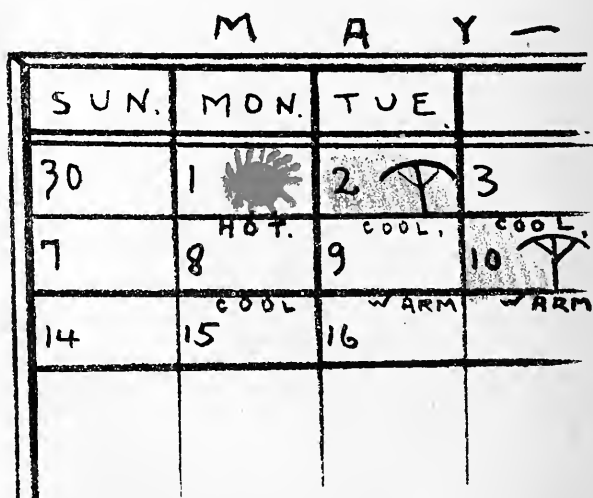 MAY—
SUN. MON. TUE.
30 1 2 3
HOT. COOL. COOL.
7 8 9 10
COOL WARM WARM
14 15 16